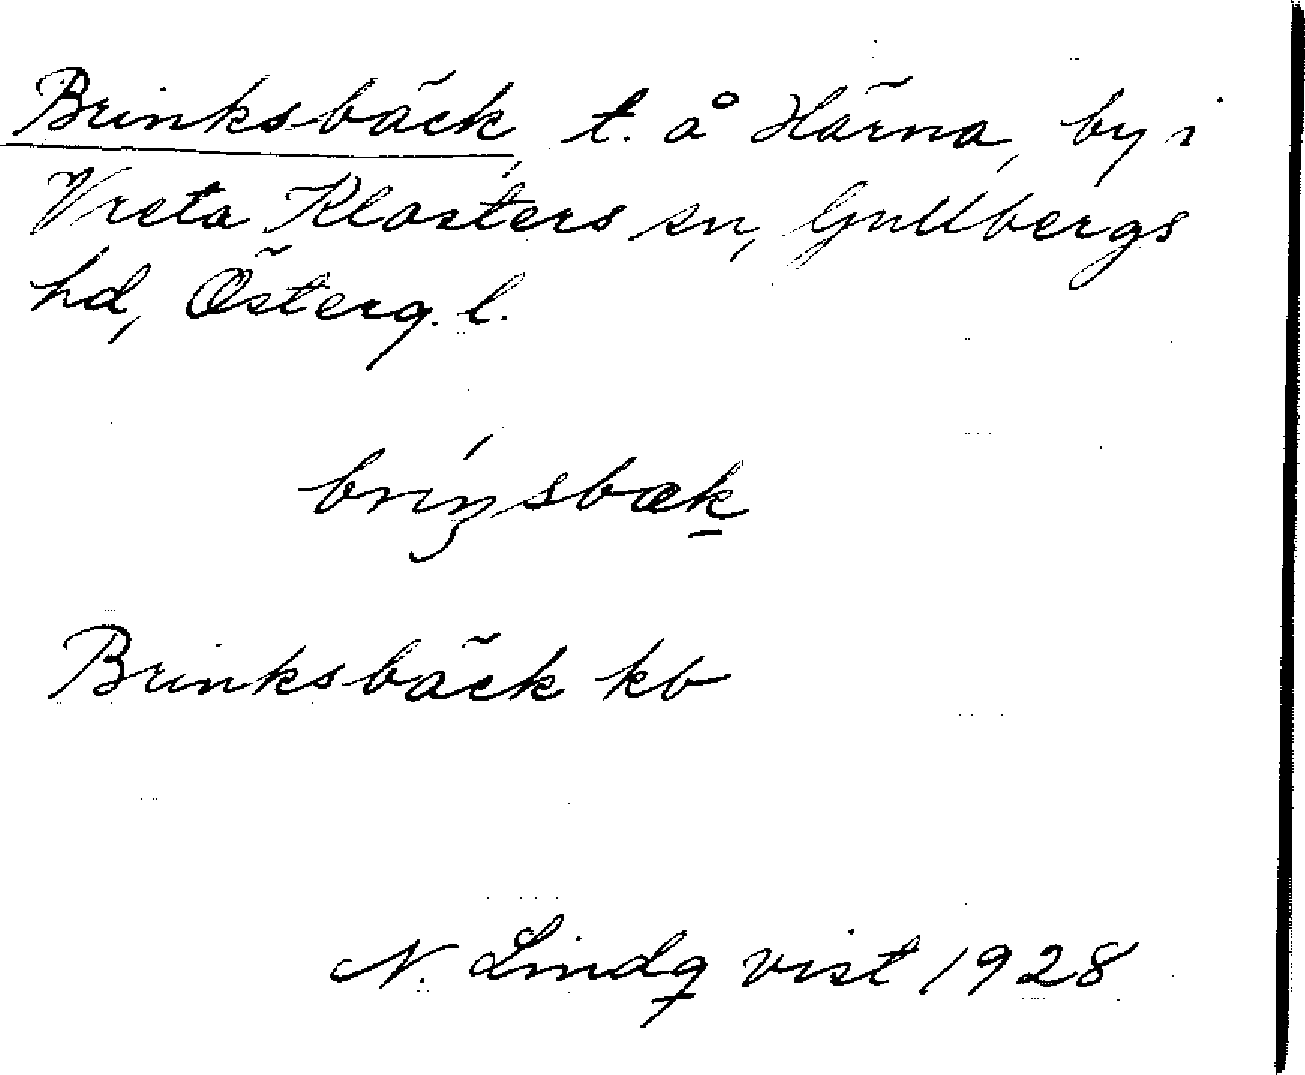 Brinksbäck, t. å Härna, by i
Vreta Klosters sn, Gullbergs
hd, Österg. l.
bri´ŋsbæk̲
Brinksbäck kb
N. Lindqvist 1928